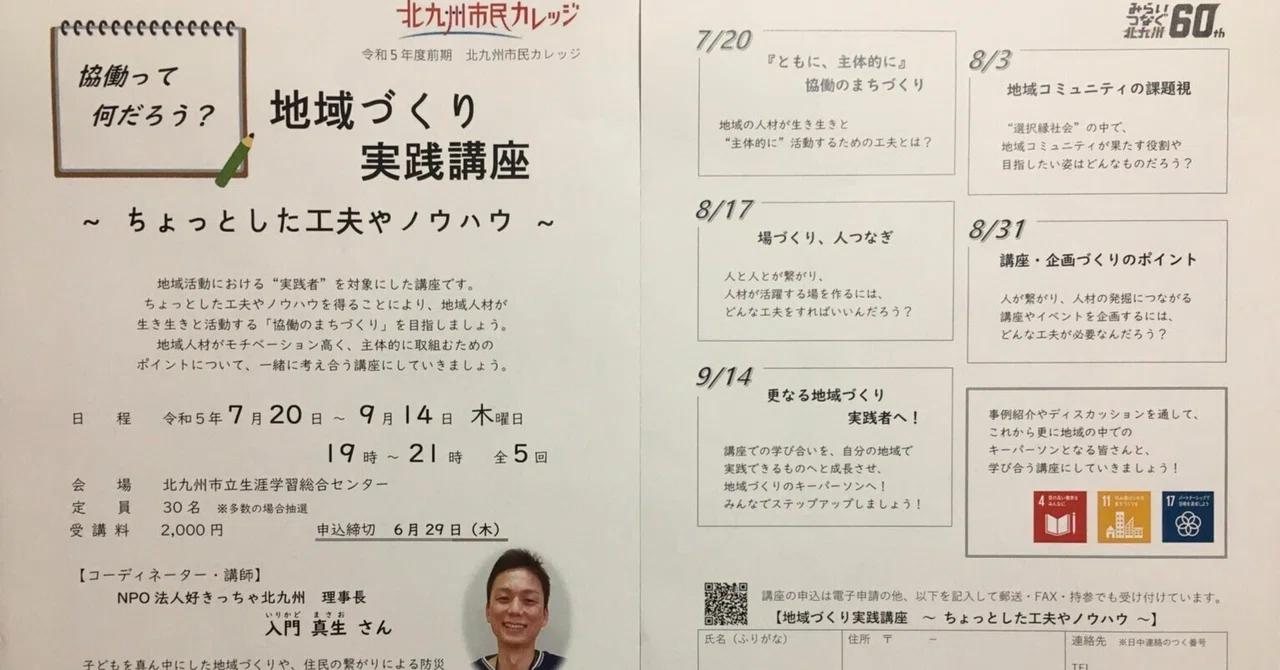 北九州市民カレッジ
令和5年度前期　北九州市民カレッジ
協働って
何だろう？
地域づくり
実践講座
～ ちょっとした工夫やノウハウ ～
地域活動における“実践者”を対象にした講座です。
ちょっとした工夫やノウハウを得ることにより、地域人材が
生き生きと活動する「協働のまちづくり」を目指しましょう。
地域人材がモチベーション高く、主体的に取組むための
ポイントについて、一緒に考え合う講座にしていきましょう。
日　程　令和5年7月20日～9月14日　木曜日
19時～21時　全5回
会　場　北九州市立生涯学習総合センター
定　員　30名　※多数の場合抽選
受講料　2,000円　申込締切　6月29日（木）
【コーディネーター・講師】
NPO法人好きっちゃ北九州　理事長
いりかど　まさお
入門 真生 さん
子どもを真ん中にした地域づくりや、住民の繋がりによる防災
みらい
つなぐ
北九州 60th
7/20
『ともに、主体的に』
協働のまちづくり
地域の人材が生き生きと
“主体的に”活動するための工夫とは？
8/3
地域コミュニティの課題視
“選択縁社会”の中で、
地域コミュニティが果たす役割や
目指したい姿はどんなものだろう？
8/17
場づくり、人つなぎ
人と人とが繋がり、
人材が活躍する場を作るには、
どんな工夫をすればいいんだろう？
8/31
講座・企画づくりのポイント
人が繋がり、人材の発掘につながる
講座やイベントを企画するには、
どんな工夫が必要なんだろう？
9/14
更なる地域づくり
実践者へ！
講座での学び合いを、自分の地域で
実践できるものへと成長させ、
地域づくりのキーパーソンへ！
みんなでステップアップしましょう！
事例紹介やディスカッションを通して、
これから更に地域の中での
キーパーソンとなる皆さんと、
学び合う講座にしていきましょう！
4 質の高い教育をみんなに
11 住み続けられるまちづくりを
17 パートナーシップで目標を達成しよう
講座の申込は電子申請の他、以下を記入して郵送・FAX・持参でも受け付けています。
【地域づくり実践講座　～ ちょっとした工夫やノウハウ ～】
氏名（ふりがな）　住所　〒　－　連絡先　※日中連絡のつく番号
TEL